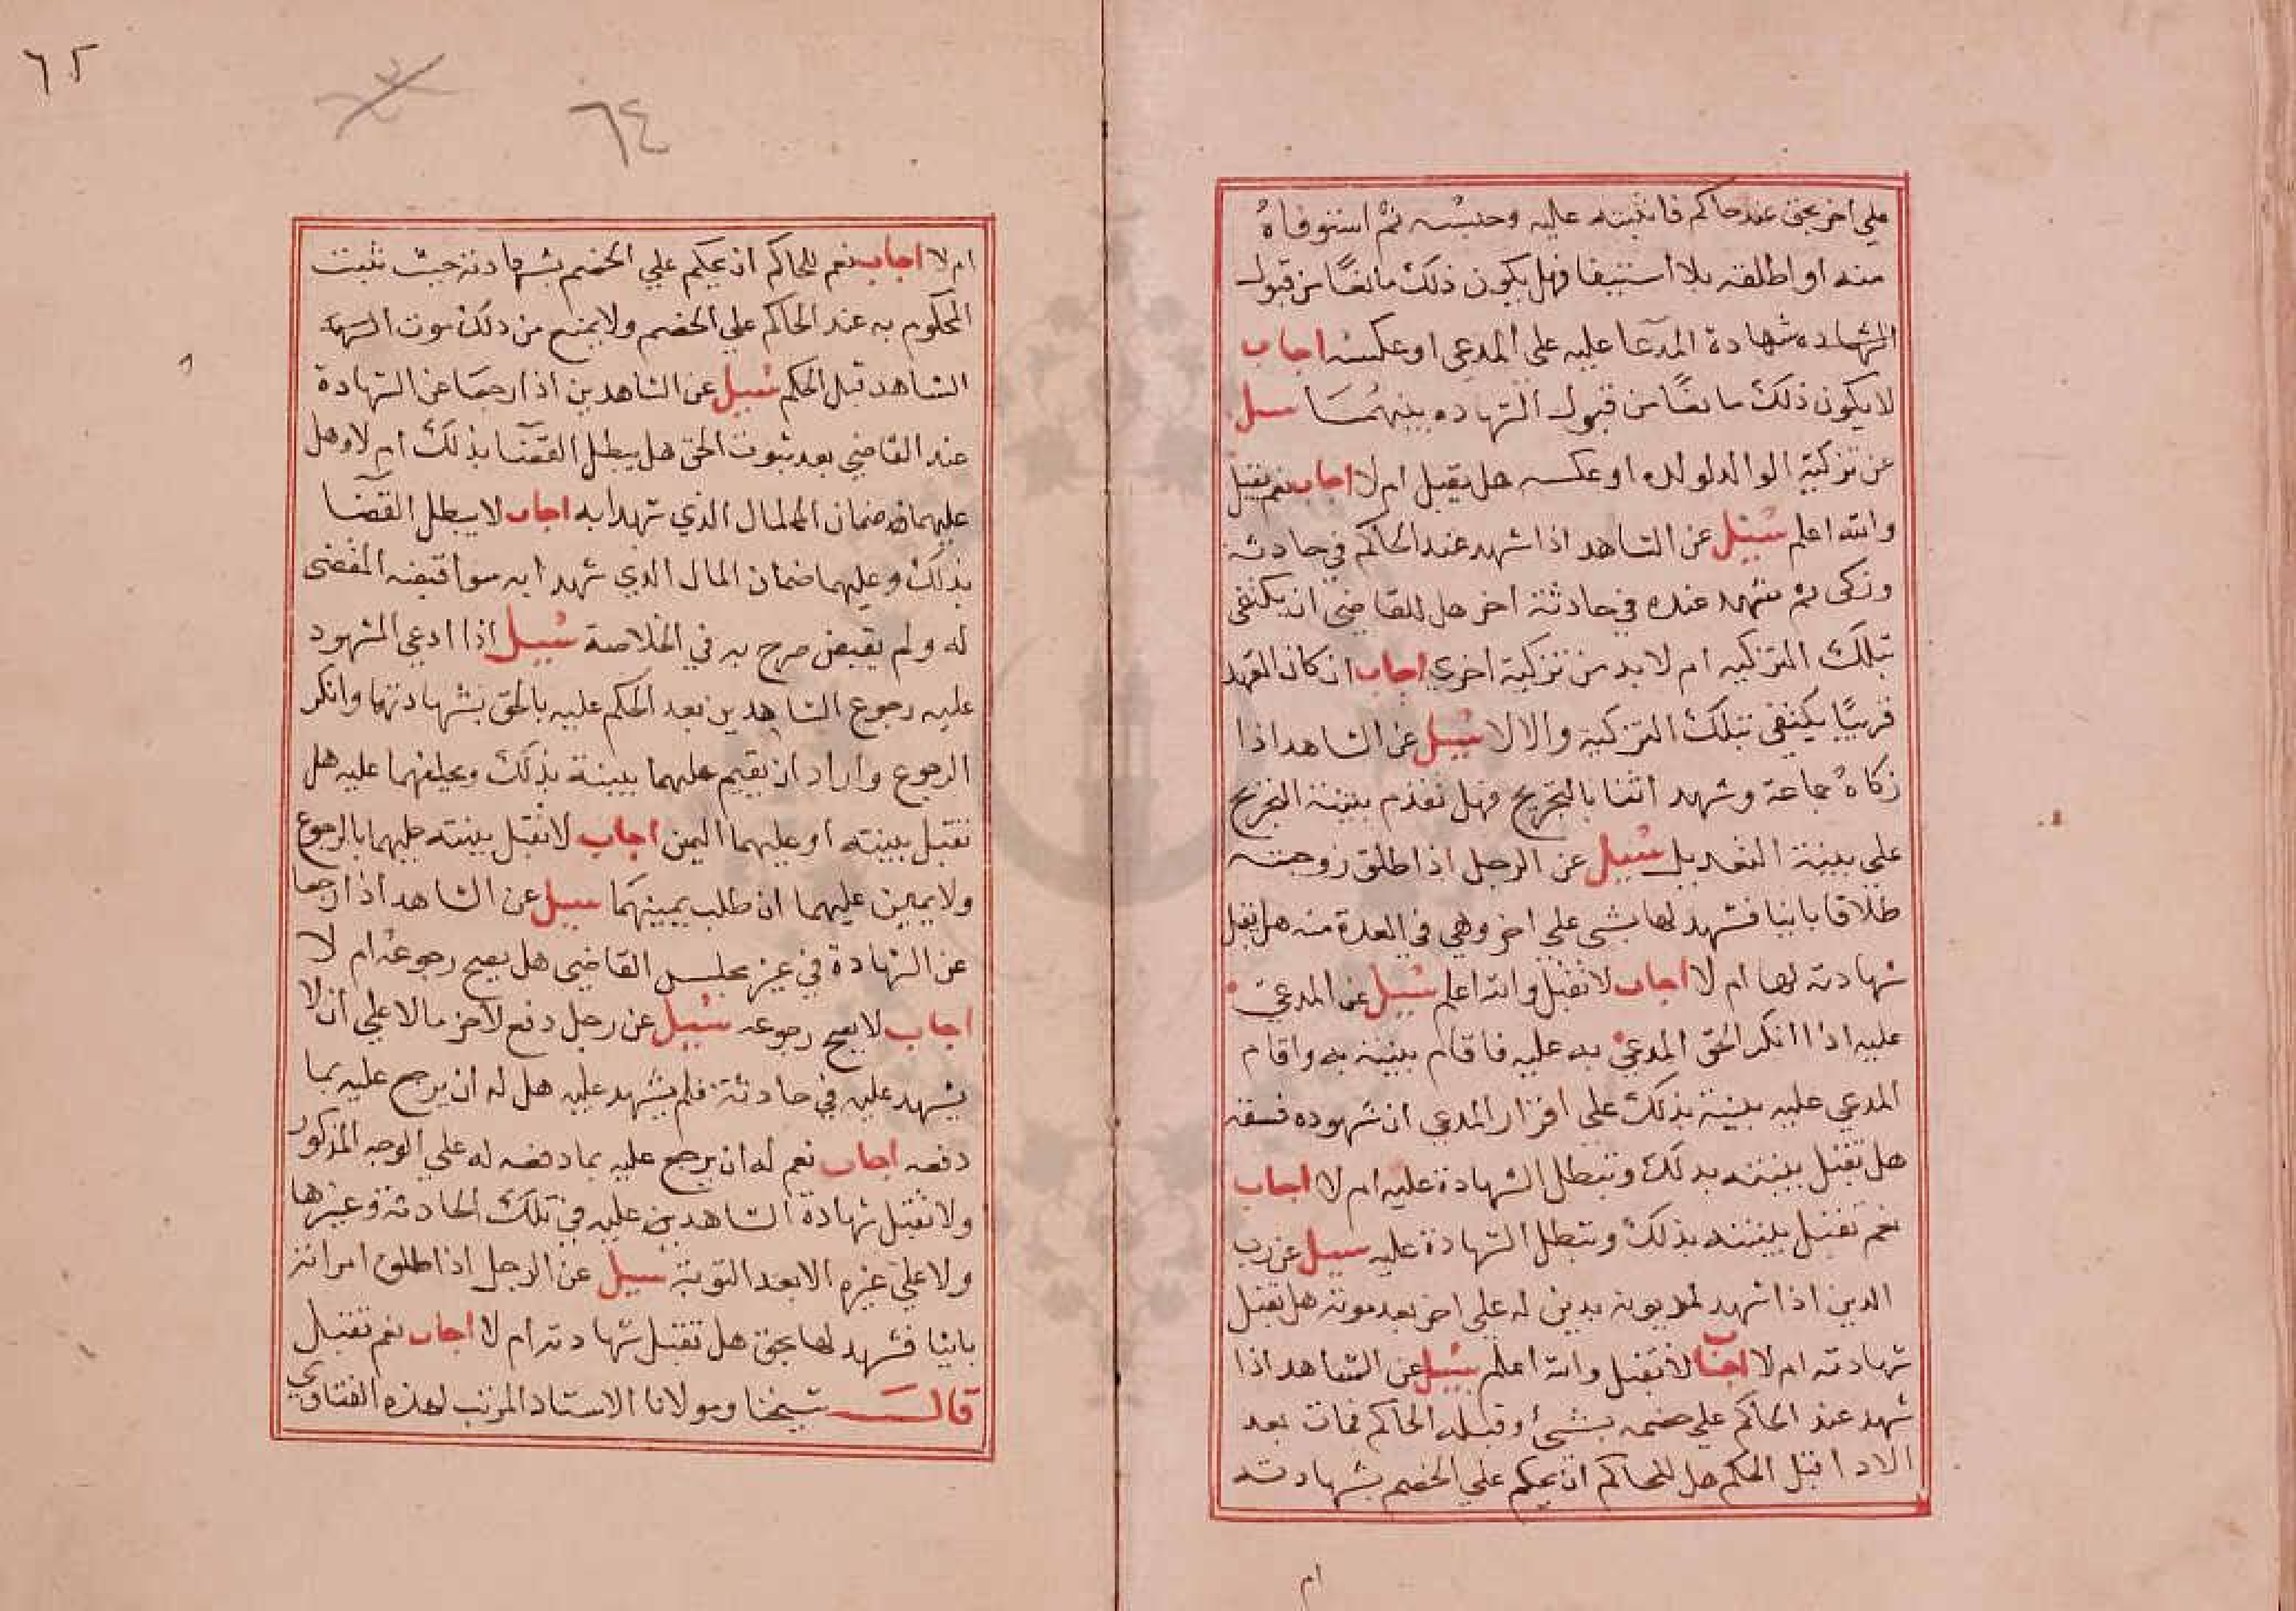 علي اخر بحق عند حاكم فاثبته عليه وحبسه ثم استوفاه
منه او اطلقه بلا استيفا فهل يكون ذلك مانعًا من قبول
الشهاده شهادة المدعا عليه علي المدعي او عكسه اجاب
لا يكون ذلك مانعًا من قبول الشهاده بينهما سيل
عن تزكية الوالد لولده او عكسه هل يقبل ام لا اجاب نعم يقبل
والله اعلم سيل عن الشاهد اذا شهد عند الحاكم في حادثه
وزكي ثم شهد عنده في حادثة اخر هل للقاضي ان يكتفي
بتلك التزكيه ام لا بد من تزكية اخري اجاب ان كان العهد
قريبًا يكتفي بتلك التزكية والا لا سيل عن الشاهد اذا
زكاه جماعة وشهد اثنا بالتجريح فهل تقدم بينة التجريح
علي بينة التعديل سيل عن الرجل اذا طلق زوجته
طلاقا باينا فشهد لها بشي علي اخر وهي في العدة منه هل تقبل
شهادته لها ام لا اجاب لا تقبل والله اعلم سيل عن المدعي
عليه اذا انكر الحق المدعي به عليه فاقام بينة به واقام
المدعي عليه بينة بذلك علي اقرار المدعي ان شهوده فسقه
هل تقبل بينته بذلك وتبطل الشهادة عليه ام لا اجاب
نعم تقبل بينته بذلك وتبطل الشهادة عليه سيل عن رب
الدين اذا شهد لمديونه بدين له علي اخر بعد موته هل تقبل
شهادته ام لا اجاب لا تقبل والله اعلم سيل عن الشاهد اذا
شهد عند الحاكم علي خصمه بشئ وقبله الحاكم فمات بعد
الادا قبل الحكم هل للحاكم ان يحكم علي الخصم بشهادته
ام
٦٢
٦٤
ام لا اجاب نعم للحاكم ان يحكم علي الخصم بشهادته حيث ثبت
المحكوم به عند الحاكم علي الخصم ولا يمنع من ذلك موت
الشاهد قبل الحكم سيل عن الشاهدين اذا رجعا عن الشهادة
عند القاضي بعد ثبوت الحق هل يبطل القضا بذلك ام لا وهل
عليهما ضمان المال الذي شهدا به اجاب لا يبطل القضا
بذلك وعليهما ضمان المال الذي شهدا به سوا قبضه المقضي
له ولم يقبض صرح به في الخلاصة سيل اذا ادعي المشهود
عليه رجوع الشاهدين بعد الحكم عليه بالحق بشهادتهما وانكر
الرجوع واراد ان يقيم عليهما ببينة بذلك ويحلفهما عليه هل
تقبل بينته او عليهما اليمين اجاب لا تقبل بينته عليهما بالرجوع
ولا يمين عليهما ان طلب يمينهما سيل عن الشاهد اذا رجعا
عن الشهادة في غير مجلس القاضي هل يصح رجوعه ام لا
اجاب لا يصح رجوعه سيل عن رجل دفع لاخر مالا علي ان لا
يشهد عليه في حادثة فلم يشهد عليه هل له ان يرجع عليه بما
دفعه اجاب نعم له ان يرجع عليه بما دفعه له علي الوجه المذكور
ولا تقبل شهادة الشاهدين عليه في تلك الحادثة وغيرها
ولا علي غيره الا بعد التوبة سيل عن الرجل اذا طلق امراته
باينا فشهد لها بحق هل تقبل شهادته ام لا اجاب نعم تقبل
قال شيخنا ومولانا الاستاد المرتب لهذه الفتاوي